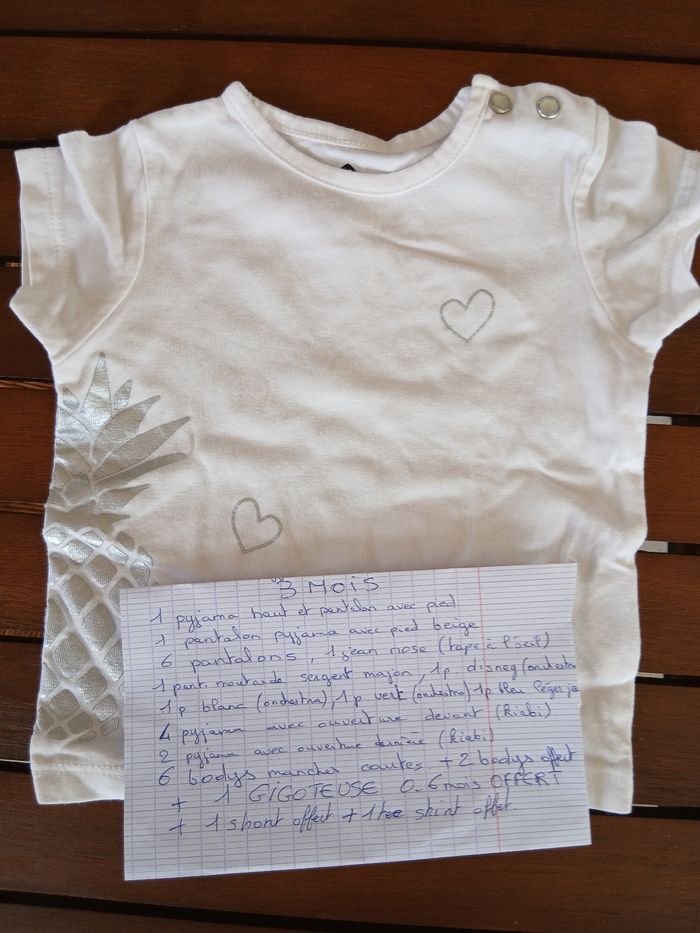 3 MOIS
1 pyjama haut et pantalon avec pied
1 pantalon pyjama avec pied beige
6 pantalons, 1 jean rose (tape à l'oeil)
1 pant. moutarde sergent major, 1 p. disney (orchestra
1 p. blanc (orchestra), 1 p. vert (orchestra) 1 p. bleu léger
4 pyjama avec ouverture devant (kiabi)
2 pyjama avec ouverture derrière (kiabi)
6 bodys manches courtes + 2 bodys offert
+ 1 GIGOTEUSE 0-6 mois OFFERT
+ 1 short offert + 1 tee shirt offert